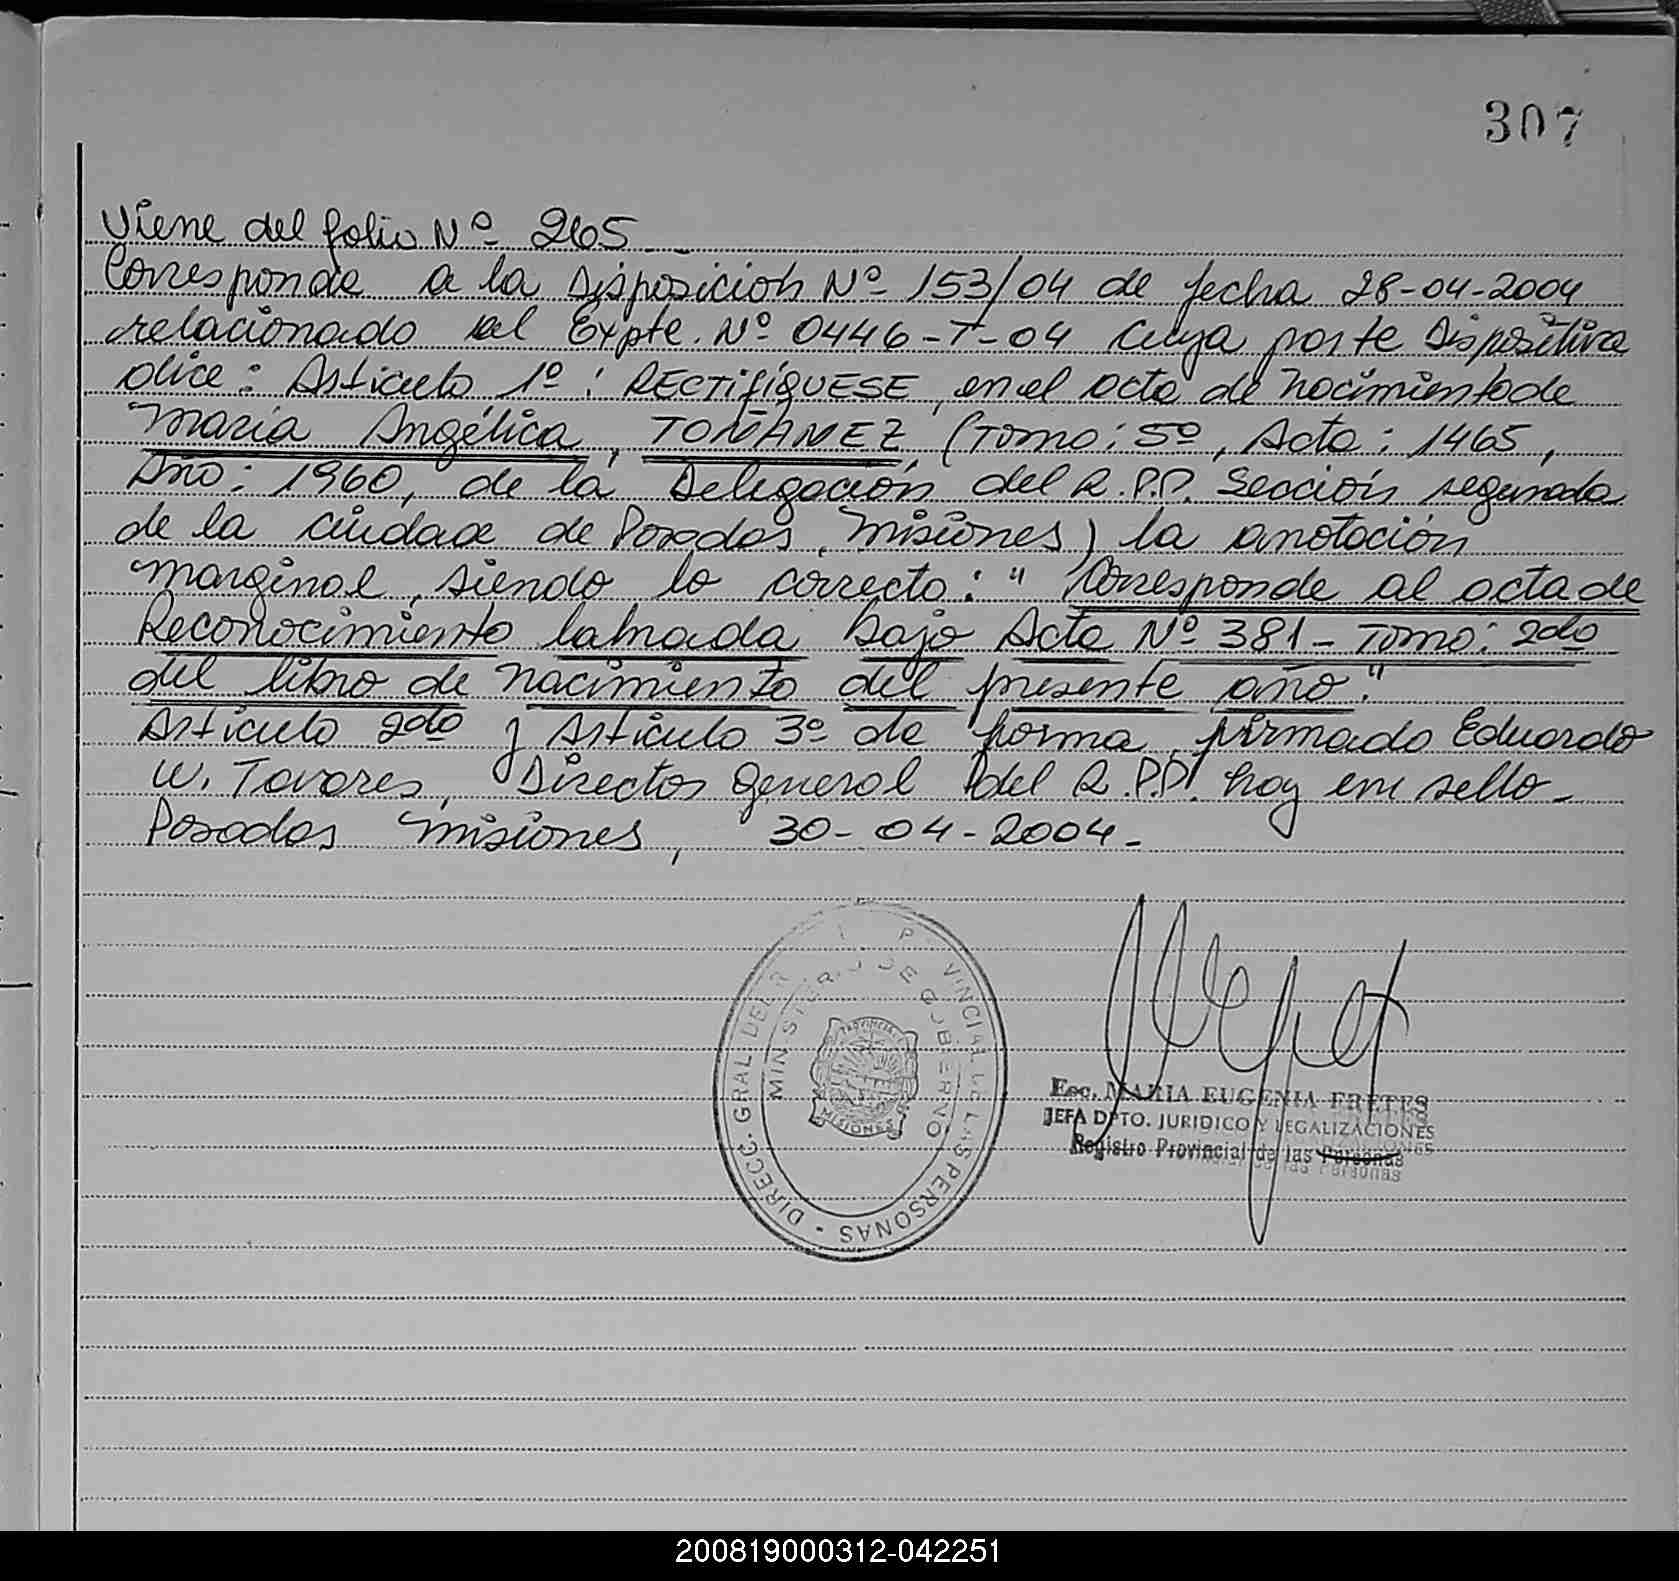 307
Viene del folio Nº 265
Corresponde a la Disposición Nº 153/04 de fecha 28-04-2004
relacionado al Expte. Nº 0446-T-04 cuya parte Dispositiva
dice: Artículo 1º: RECTIFÍQUESE, en el acta de nacimiento de
María Angélica, TOÑANEZ, (Tomo: 5º, Acta: 1465,
Año: 1960, de la Delegación del R.P.P. Sección segunda
de la ciudad de Posadas, Misiones) la anotación
marginal, siendo lo correcto: "Corresponde al acta de
Reconocimiento labrada bajo Acta Nº 381 - Tomo: 2do
del libro de nacimiento del presente año."
Artículo 2do y Artículo 3º de forma, firmado Eduardo
W. Tavares, Director General del R.P.P. hay un sello-
Posadas Misiones, 30-04-2004.-
DIRECC. GRAL DEL VINCIAL DE LAS PERSONAS -
MINISTERIO DE GOBIERNO
PROVINCIA
MISIONES
Esc. MARIA EUGENIA FRETES
JEFA DPTO. JURIDICO Y LEGALIZACIONES
Registro Provincial de las Personas
200819000312-042251